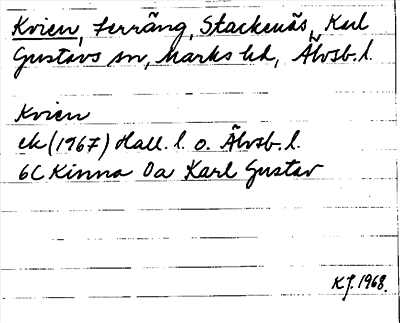 Kvien, terräng, Stackenäs, Karl
Gustavs sn, Marks hd, Älvsb. l.
Kvien
ek (1967) Hall. l. o. Älvsb. l.
6C Kinna 0a Karl Gustav
K.J. 1968.